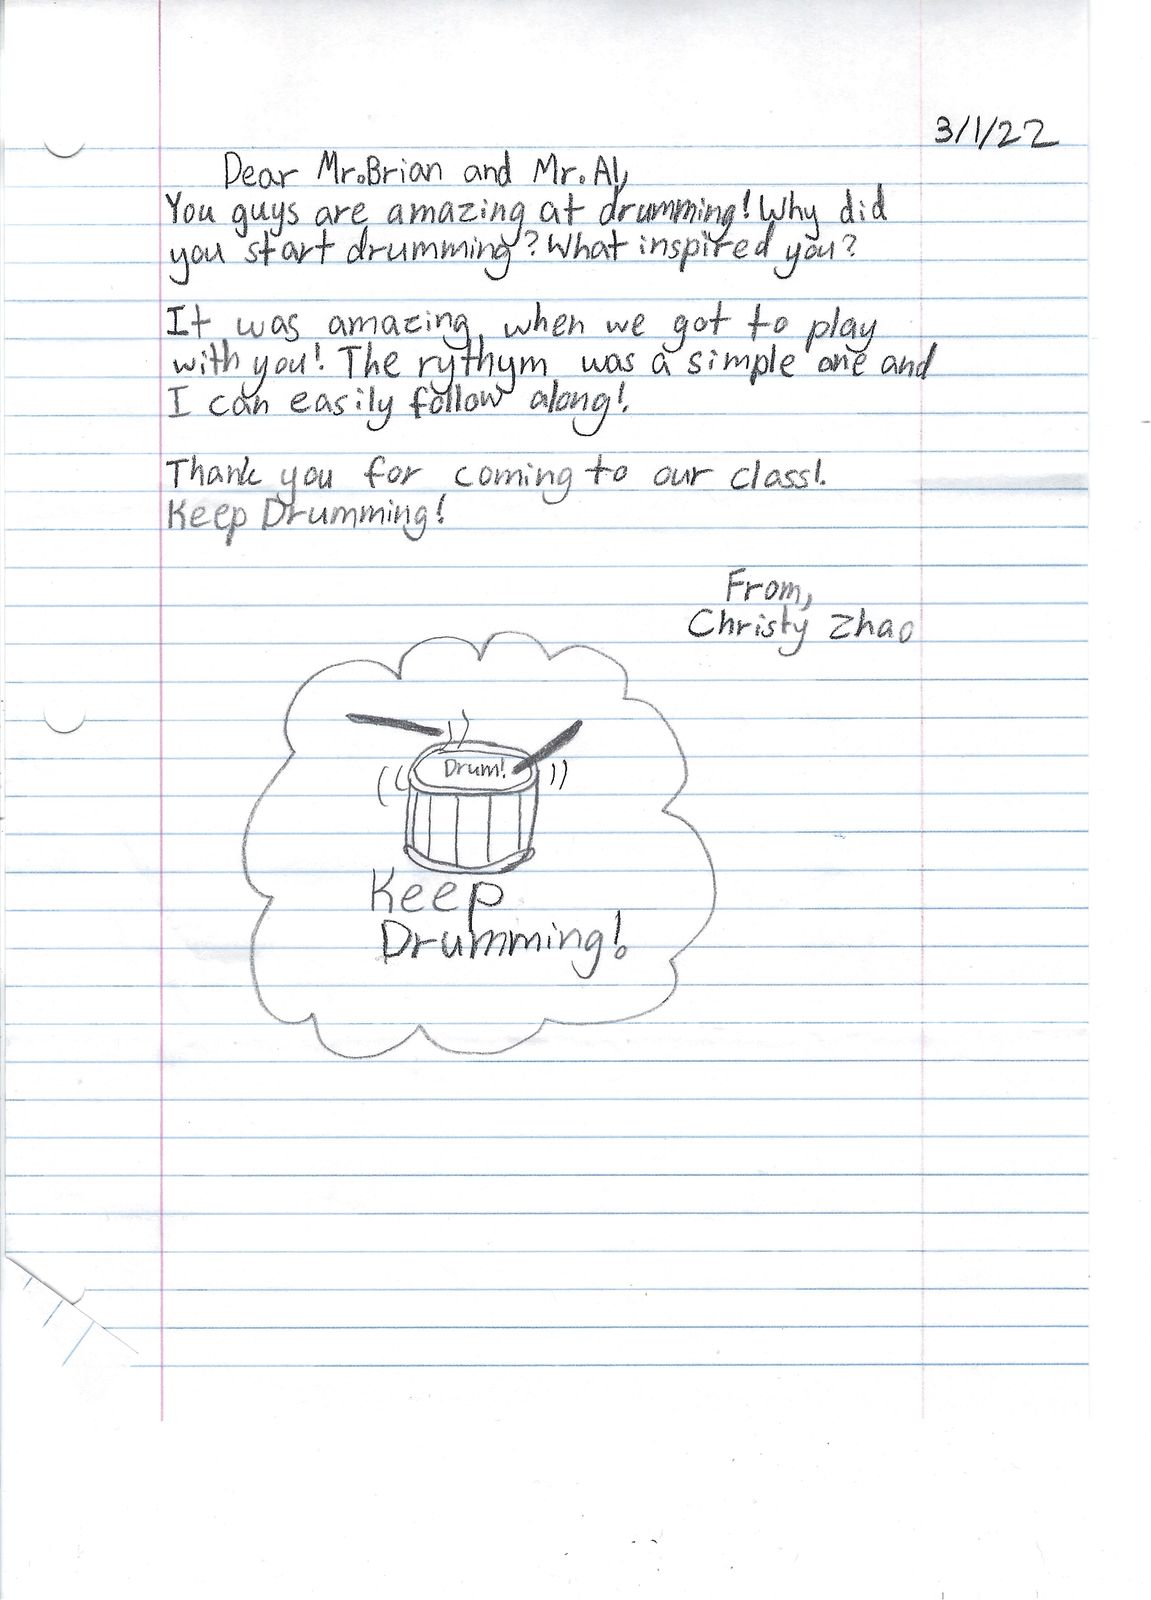 3/1/22
Dear Mr.Brian and Mr.Al,
You guys are amazing at drumming! Why did
you start drumming? What inspired you?
It was amazing when we got to play
with you! The rythym was a simple one and
I can easily follow along!
Thank you for coming to our class!
Keep Drumming!
From,
Christy Zhao
Drum!
Keep
Drumming!